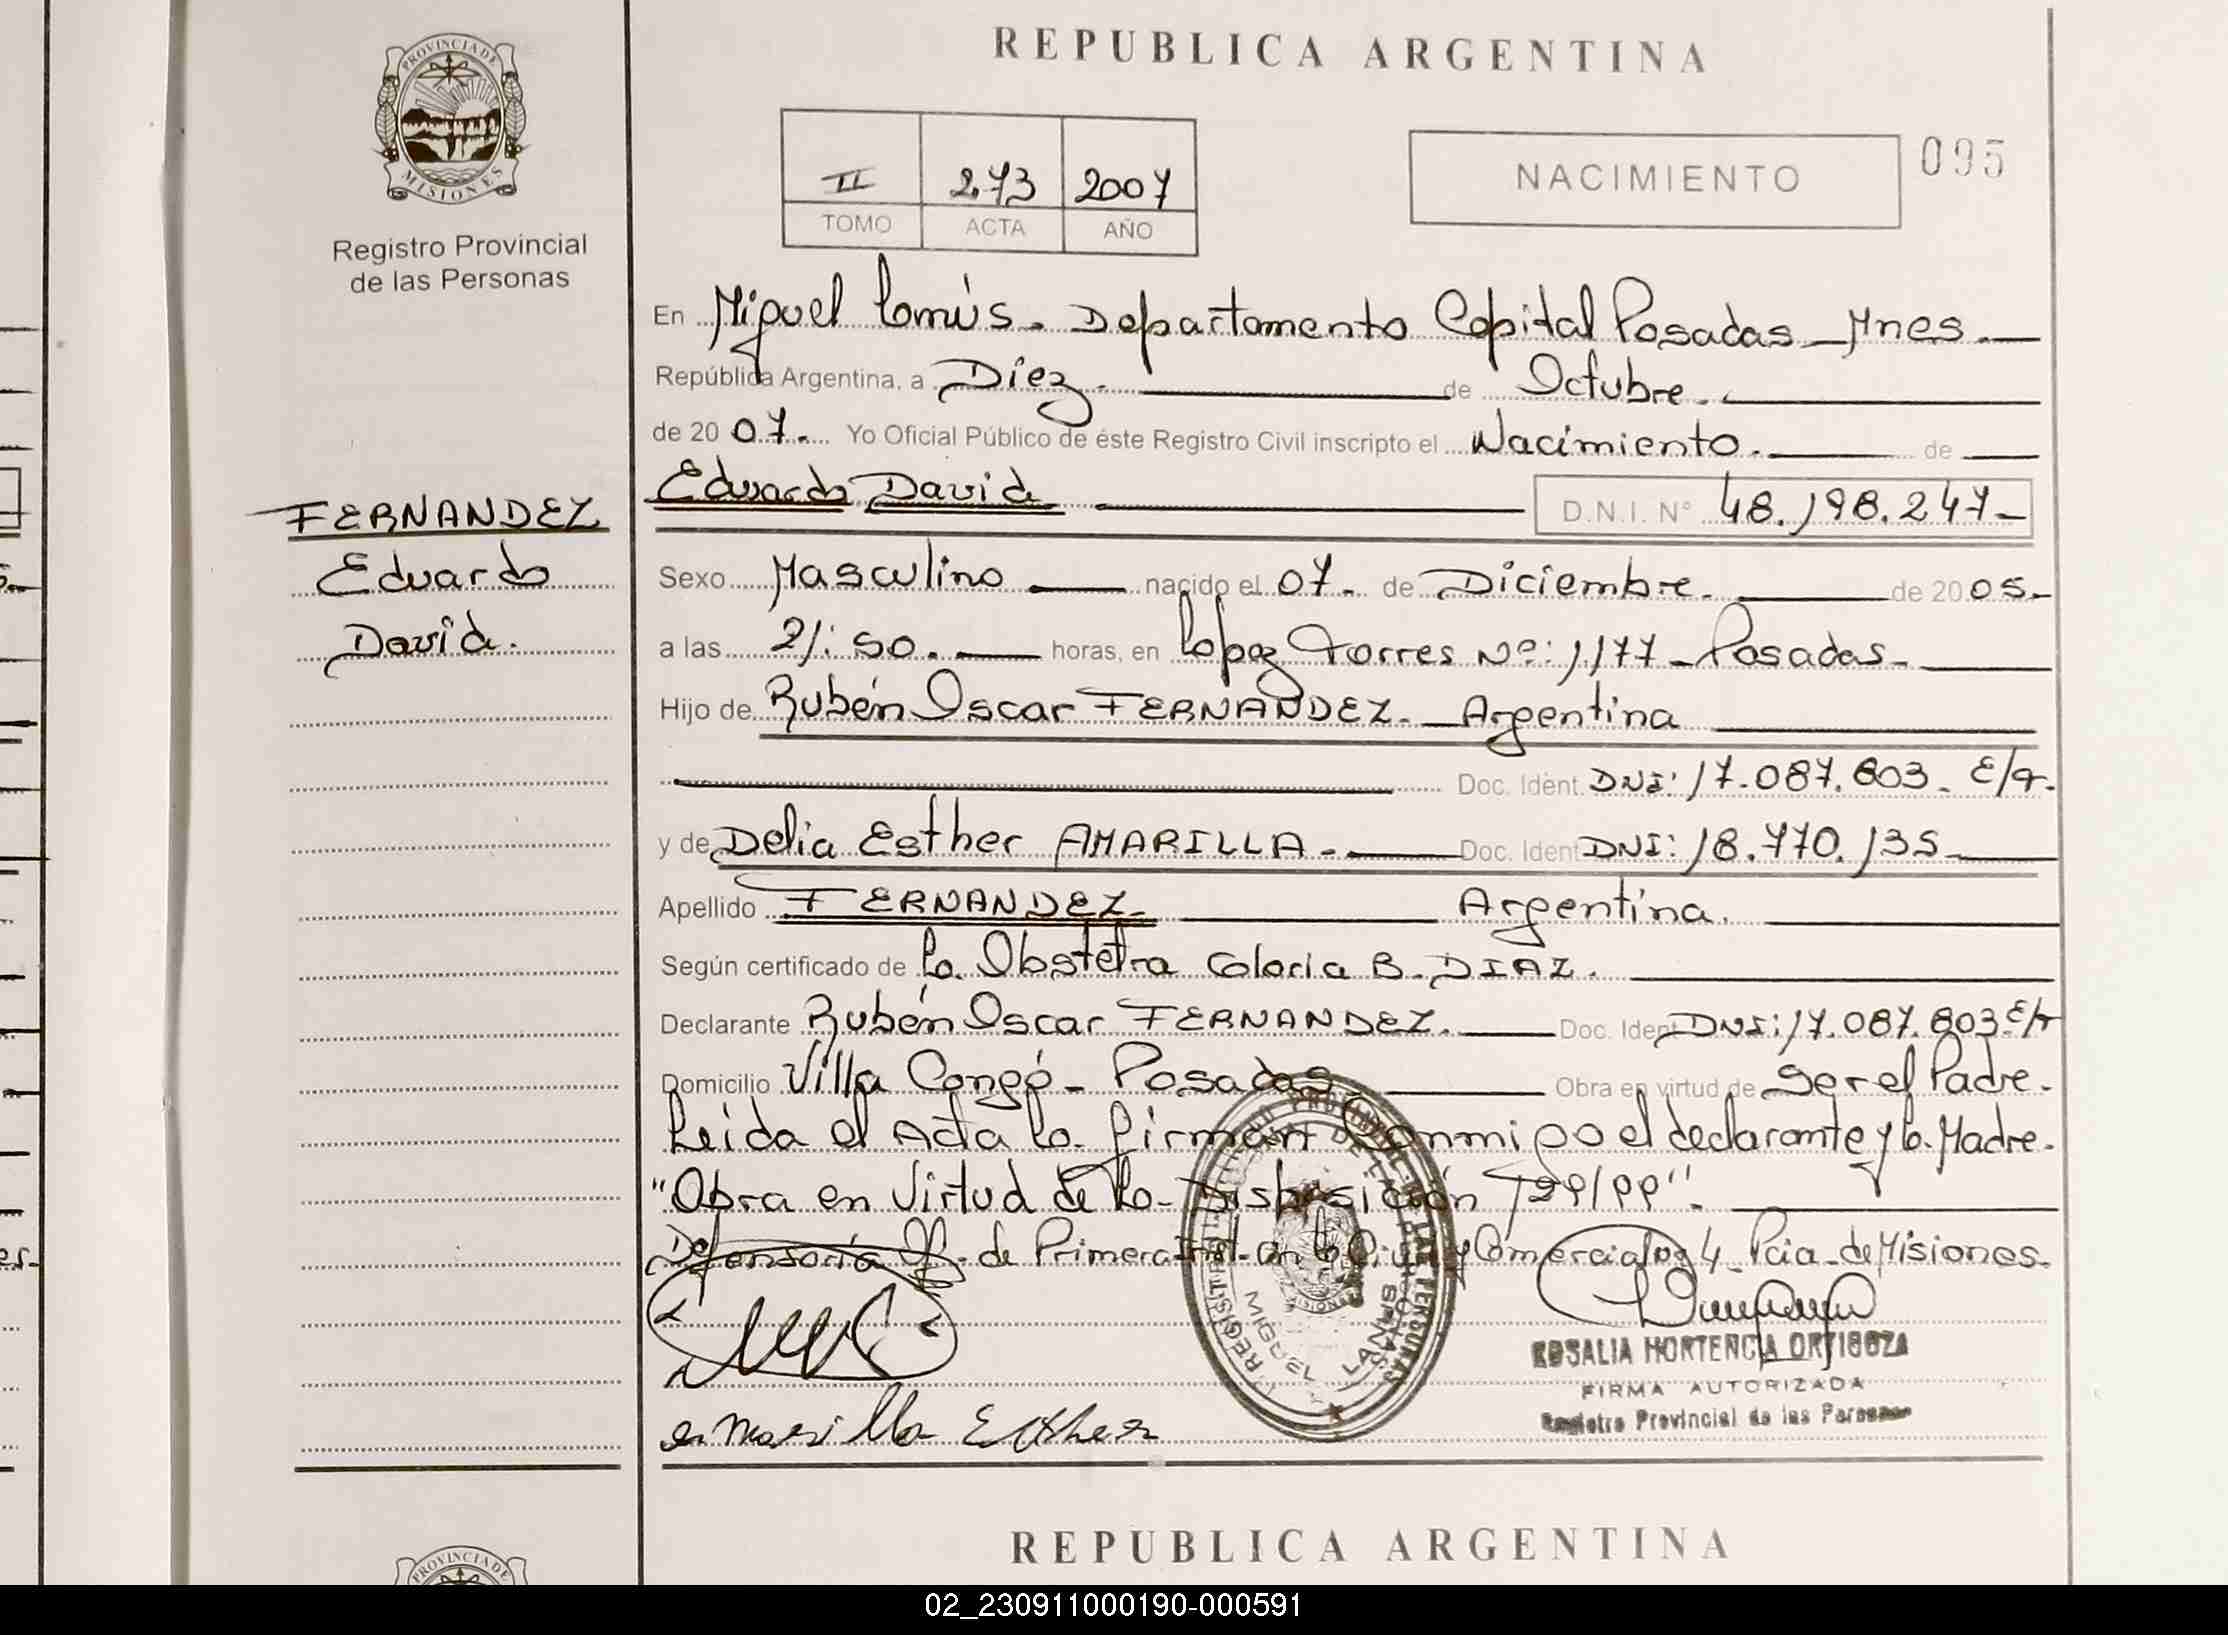 PROVINCIA DE
MISIONES
Registro Provincial
de las Personas
FERNANDEZ
Eduardo
David.
REPUBLICA ARGENTINA
II 273 2007
TOMO ACTA AÑO
NACIMIENTO
095
En Miguel Lanús. Departamento Capital Posadas Mnes.
República Argentina, a Diez. de Octubre.
de 20 07. Yo Oficial Público de éste Registro Civil inscripto el Nacimiento. de
Eduardo David D.N.I. N° 48.198.247
Sexo Masculino nacido el 07. de Diciembre. de 20 05.
a las 21:50. horas, en Lopez Torres Nº: 1177 Posadas.
Hijo de Rubén Oscar FERNANDEZ. Argentina
Doc. Ident. DNI: 17.087.803. E/t.
y de Delia Esther AMARILLA. Doc. Ident DNI: 18.770.135
Apellido FERNANDEZ Argentina.
Según certificado de la Obstetra Gloria B. DIAZ.
Declarante Rubén Oscar FERNANDEZ. Doc. Ident DNI: 17.087.803 E/t
Domicilio Villa Longa - Posadas Obra en virtud de ser el Padre.
Leida el Acta la firman Conmigo el declarante y la Madre.
"Obra en Virtud de la Disposición
Defensoría Of. de Primera Inst. en lo Civil y Comercial Nº 4 Pcia de Misiones.
REGISTRO PROVINCIAL DE LAS PERSONAS
MIGUEL LANUS
POSADAS
MISIONES
ROSALIA HORTENCIA ORTIGOZA
FIRMA AUTORIZADA
Registro Provincial de las Personas
Amarilla Esther
REPUBLICA ARGENTINA
PROVINCIA DE
02_230911000190-000591